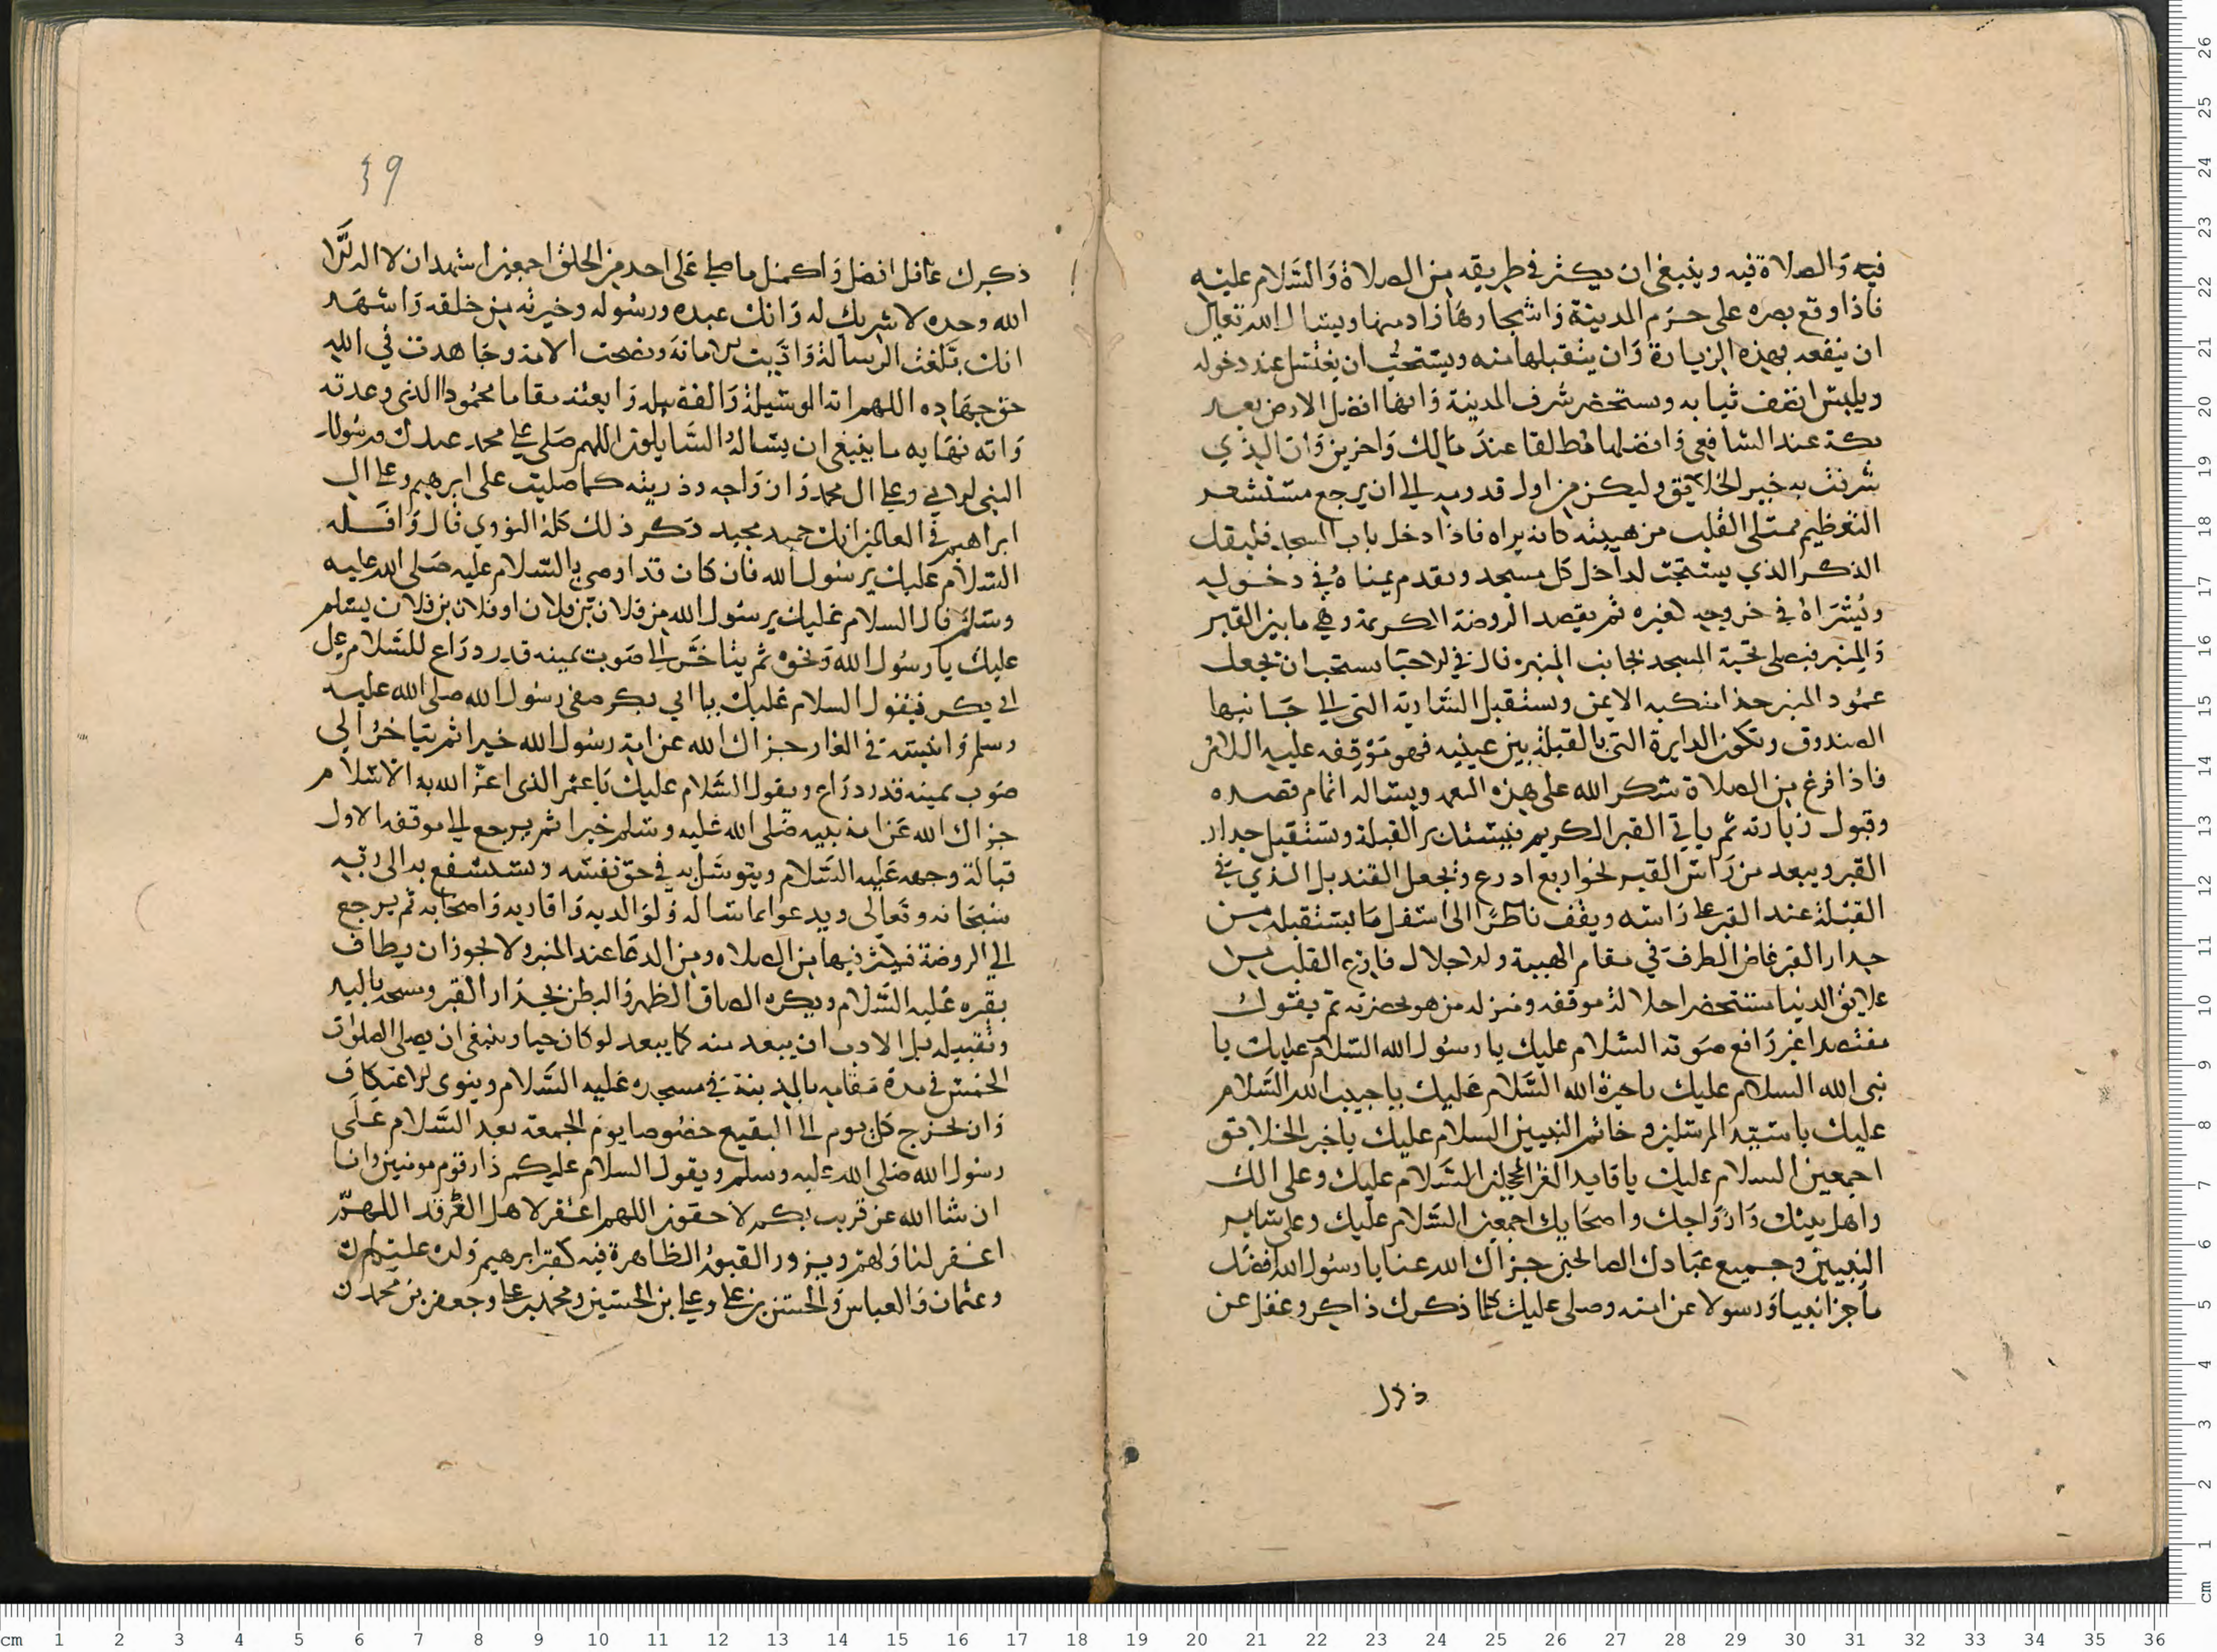 فيه والصلاة فيه وينبغي ان يكثر في طريقه من الصلاة والسلام عليه
فاذا وقع بصره على حرم المدينة واشجارها زاد منها ويسال الله تعالى
ان ينفعه بهذه الزيارة وان يتقبلها منه ويستحب ان يغتسل عند دخوله
ويلبس انظف ثيابه ويستحضر شرف المدينة وانها افضل الارض بعد
مكة عند الشافعي وافضلها مطلقا عند مالك واخرين وان الذي
شرفت به خير الخلايق وليكن من اول قدومه الى ان يرجع مستشعر
التعظيم ممتلى القلب من هيبته كانه يراه فاذا دخل باب المسجد فليقل
الذكر الذي يستحب لداخل كل مسجد ويقدم يمناه في دخوله
ويسراه في خروجه لغيره ثم يقصد الروضة الكريمة وهي ما بين القبر
والمنبر فيصلي تحية المسجد بجانب المنبر قال في الاحيا يستحب ان يجعل
عمود المنبر حذا منكبه الايمن ويستقبل السارية التي الى جانبها
الصندوق وتكون الدايرة التي بالقبلة بين عينيه فهو موقفه عليه السلام
فاذا فرغ من الصلاة شكر الله على هذه النعمه ويساله اتمام قصده
وقبول زيارته ثم ياتي القبر الكريم فيستدبر القبلة ويستقبل جدار
القبر ويبعد من راس القبر نحو اربع ادرع ويجعل القنديل الذي في
القبلة عند القبر على راسه ويقف ناظرا الى اسفل ما يستقبله من
جدار القبر غاض الطرف في مقام الهيبة والاجلال فارغ القلب من
علايق الدنيا مستحضرا جلالة موقفه ومنزلة من هو بحضرته ثم يقول
مقتصدا غير رافع صوته السلام عليك يا رسول الله السلام عليك يا
نبي الله السلام عليك يا خيرة الله السلام عليك يا حبيب الله السلام
عليك يا سيد المرسلين وخاتم النبيين السلام عليك يا خير الخلايق
اجمعين السلام عليك يا قايد الغر المحجلين السلام عليك وعلى الك
واهل بيتك وازواجك واصحابك اجمعين السلام عليك وعلى ساير
النبيين وجميع عبادك الصالحين جزاك الله عنا يا رسول الله افضل
ما جزا نبيا ورسولا عن امته وصلى عليك كلما ذكرك ذاكر وغفل عن
39
ذكرك غافل افضل واكمل ما صلى على احد من الخلق اجمعين اشهد ان لا اله الا
الله وحده لا شريك له وانك عبده ورسوله وخيرته من خلقه واشهد
انك بلغت الرسالة واديت الامانة ونصحت الامة وجاهدت في الله
حق جهاده اللهم اته الوسيلة والفضيلة وابعثه مقاما محمودا الذي وعدته
واته نهاية ما ينبغي ان يساله السايلون اللهم صلى على محمد عبدك ورسولك
النبي الامي وعلى ال محمد وازواجه وذريته كما صليت على ابرهيم وعلى ال
ابراهيم في العالمين انك حميد مجيد ذكر ذلك كله النووي قال واقله
السلام عليك يرسول الله فان كان قد اوصي بالسلام عليه صلى الله عليه
وسلم قال السلام عليك يرسول الله من فلان بن فلان او فلان بن فلان يسلم
عليك يا رسول الله ونحوه ثم يتاخر الى صوب يمينه قدر دراع للسلام على
ابي بكر فيقول السلام عليك يا ابي بكر صفي رسول الله صلى الله عليه
وسلم وانيسه في الغار جزاك الله عن امة رسول الله خيرا ثم يتاخر الى
صوب يمينه قدر دراع ويقول السلام عليك يا عمر الذي اعز الله به الاسلام
جزاك الله عن امة نبيه صلى الله عليه وسلم خيرا ثم يرجع الى موقفه الاول
قبالة وجهه عليه السلام ويتوسل به في حق نفسه ويستشفع به الى ربه
سبحانه وتعالى ويدعوا بما شا له ولوالديه واقاربه واصحابه ثم يرجع
الى الروضة فيكثر فيها من الصلاه ومن الدعا عند المنبر ولا يجوز ان يطاف
بقبره عليه السلام ويكره الصاق الظهر والبطن بجدار القبر ومسحه باليد
وتقبيله بل الادب ان يبعد منه كما يبعد لو كان حيا وينبغي ان يصلي الصلوات
الخمس في مدة مقامه بالمدينة في مسجده عليه السلام وينوى الاعتكاف
وان يخرج كل يوم الى البقيع خصوصا يوم الجمعة بعد السلام على
رسول الله صلى الله عليه وسلم ويقول السلام عليكم دار قوم مومنين وانا
ان شا الله عن قريب بكم لاحقون اللهم اغفر لاهل الغرقد اللهم
اغفر لنا ولهم ويزور القبور الظاهرة فيه كقبر ابرهيم ولده
وعثمان والعباس والحسن بن علي وعلي بن الحسين ومحمد بن علي وجعفر بن محمد